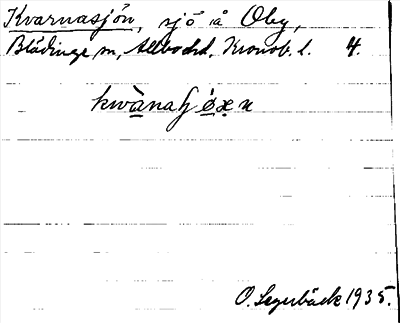 Kvarnasjön, sjö å Oby,
Blädinge sn, Allbo hd, Kronob. l. 4.
kwànaʃöxn
O. Segerbäck 1935.